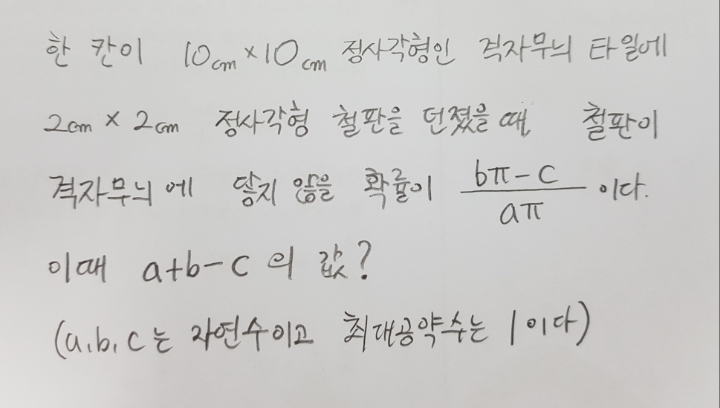 한 칸이 10cm×10cm 정사각형인 격자무늬 타일에
2cm × 2cm 정사각형 철판을 던졌을 때, 철판이
격자무늬에 닿지 않을 확률이 \frac{bπ-c}{aπ} 이다.
이때 a+b-c 의 값?
(a,b,c는 자연수이고 최대공약수는 1이다)